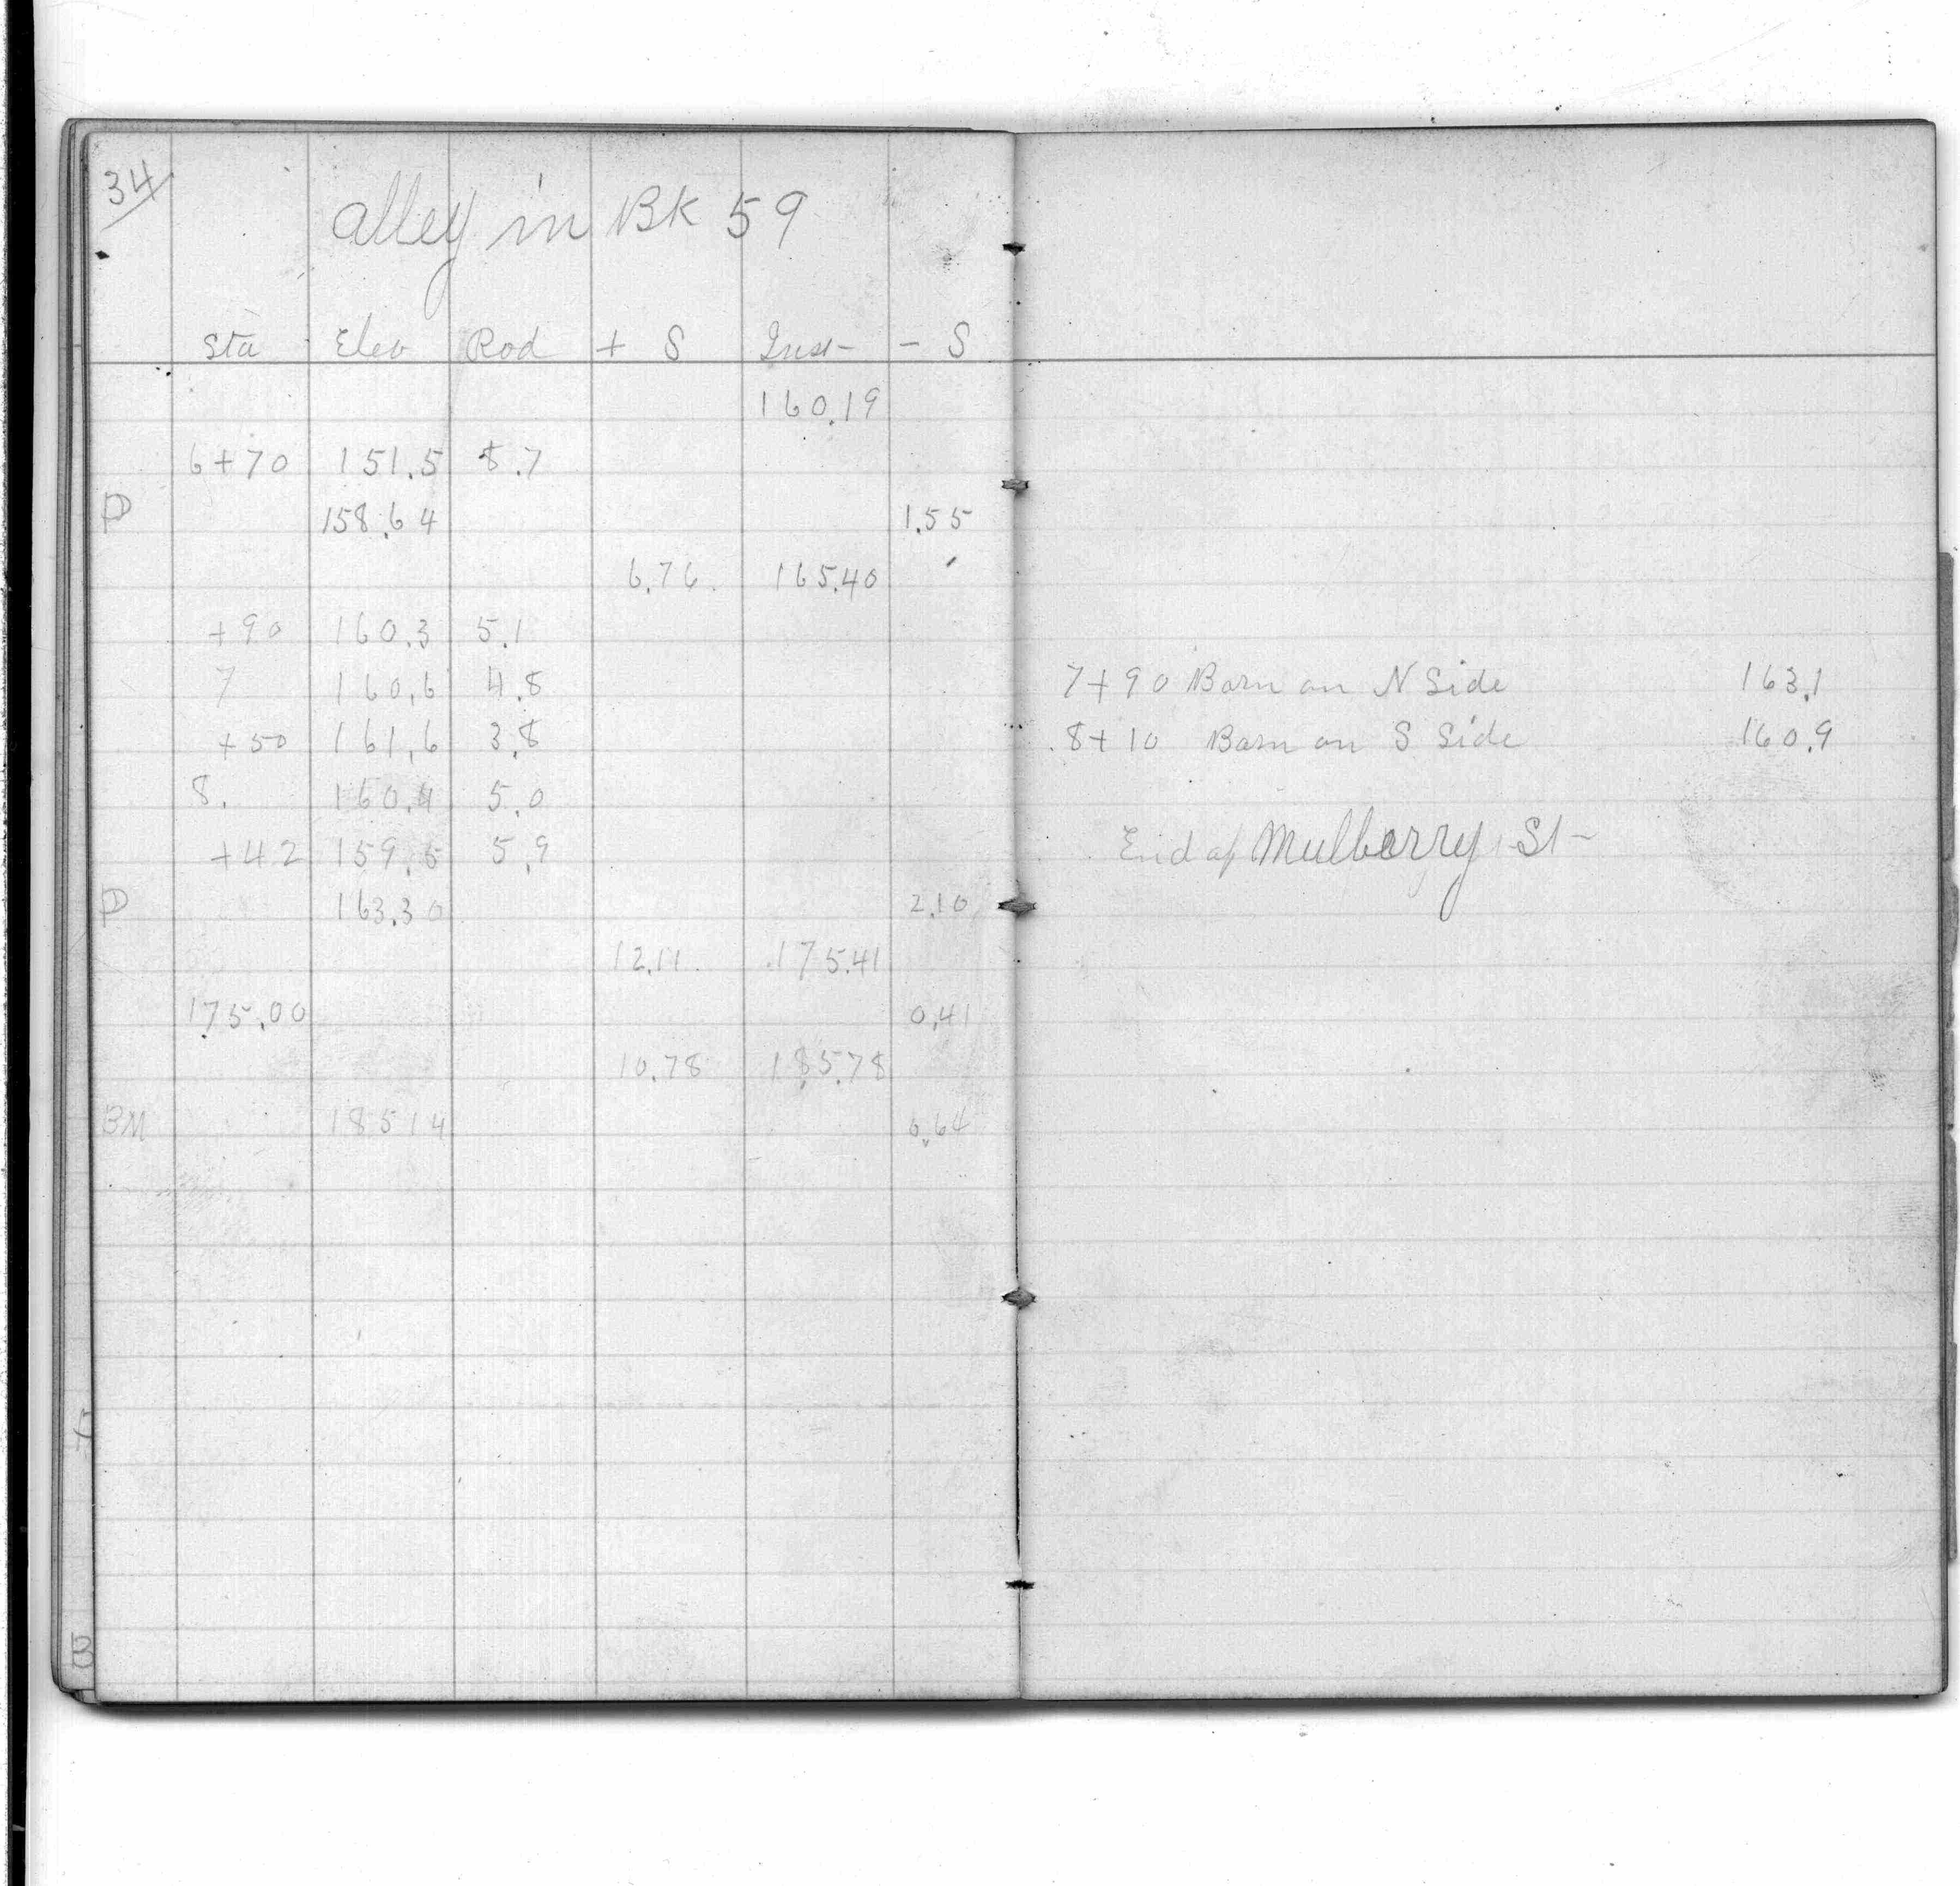 34
alley in Bk 59
Sta Elev Rod + S Inst - S
160.19
6+70 151.5 8.7
158.64 1.55
6.76 165.40
+90 160.3 5.1
7 160.6 4.8
+50 161.6 3.8
8. 160.4 5.0
+42 159.5 5.9
163.30 2.10
12.11 175.41
175.00 0.41
10.78 185.78
BM 185 14 0.64
7+90 Barn on N Side 163.1
8+10 Barn on S Side 160.9
End of Mulberry St